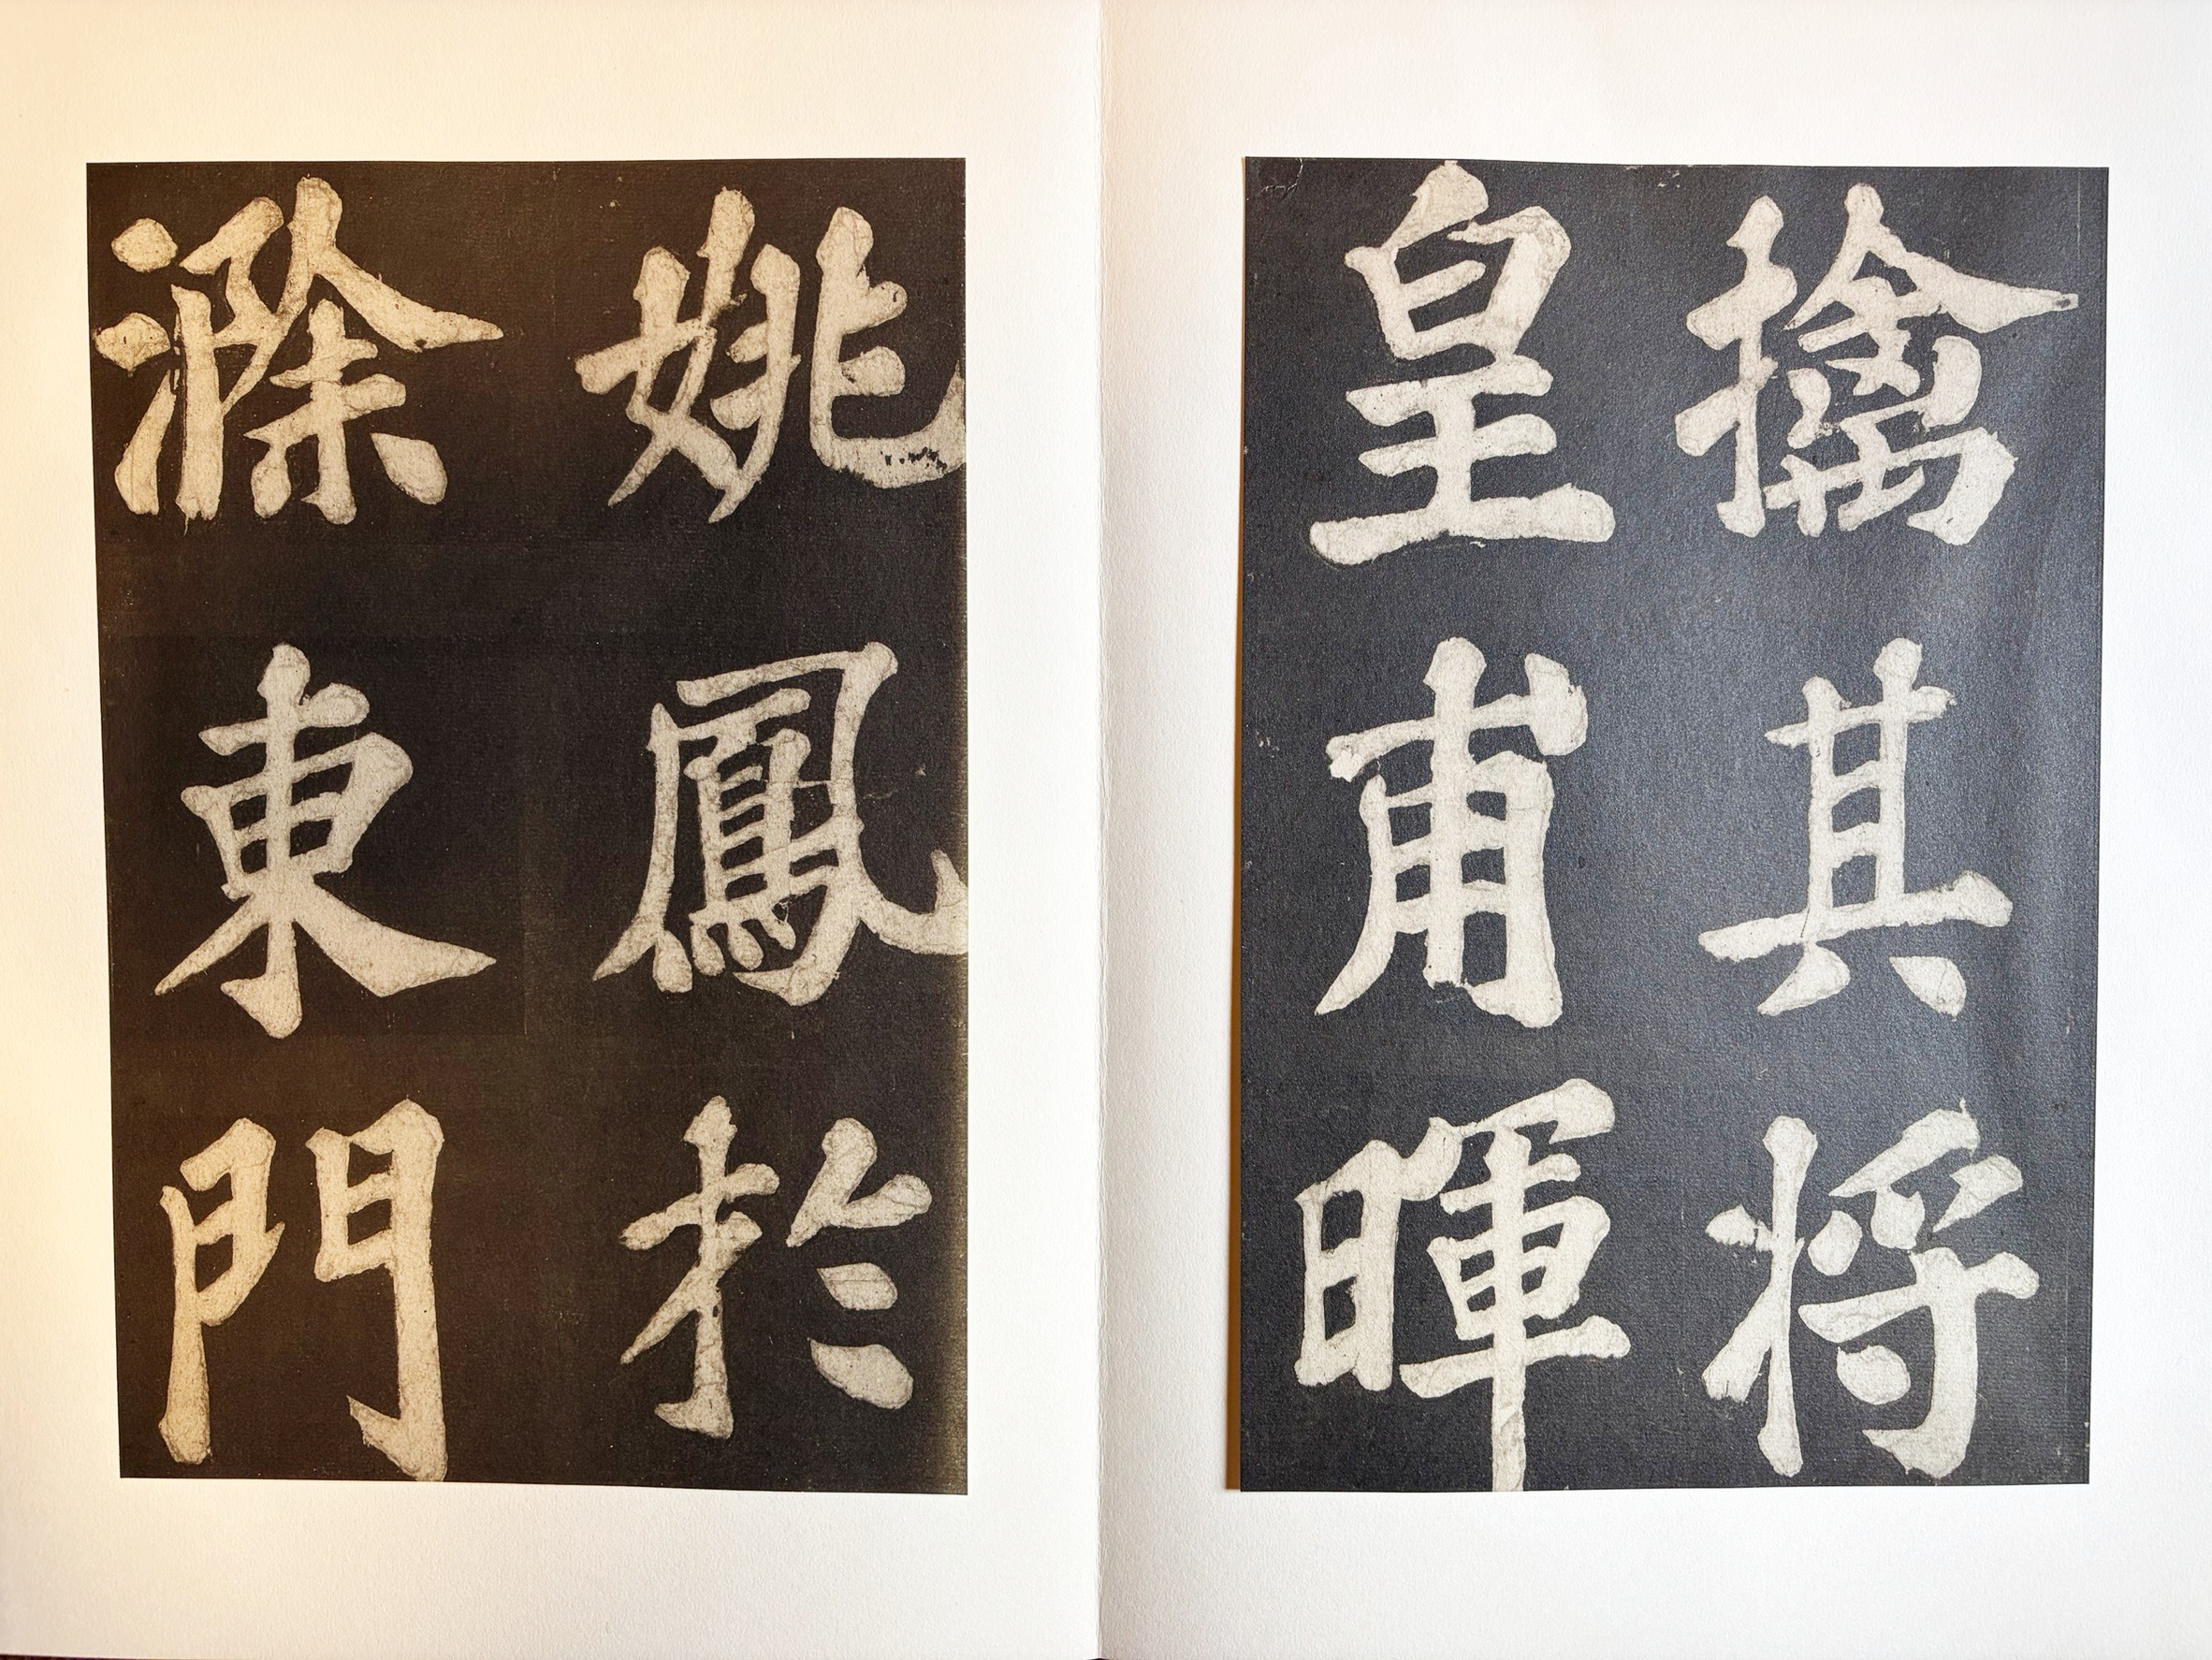 擒其将
皇甫暉
姚鳳於
滁東門